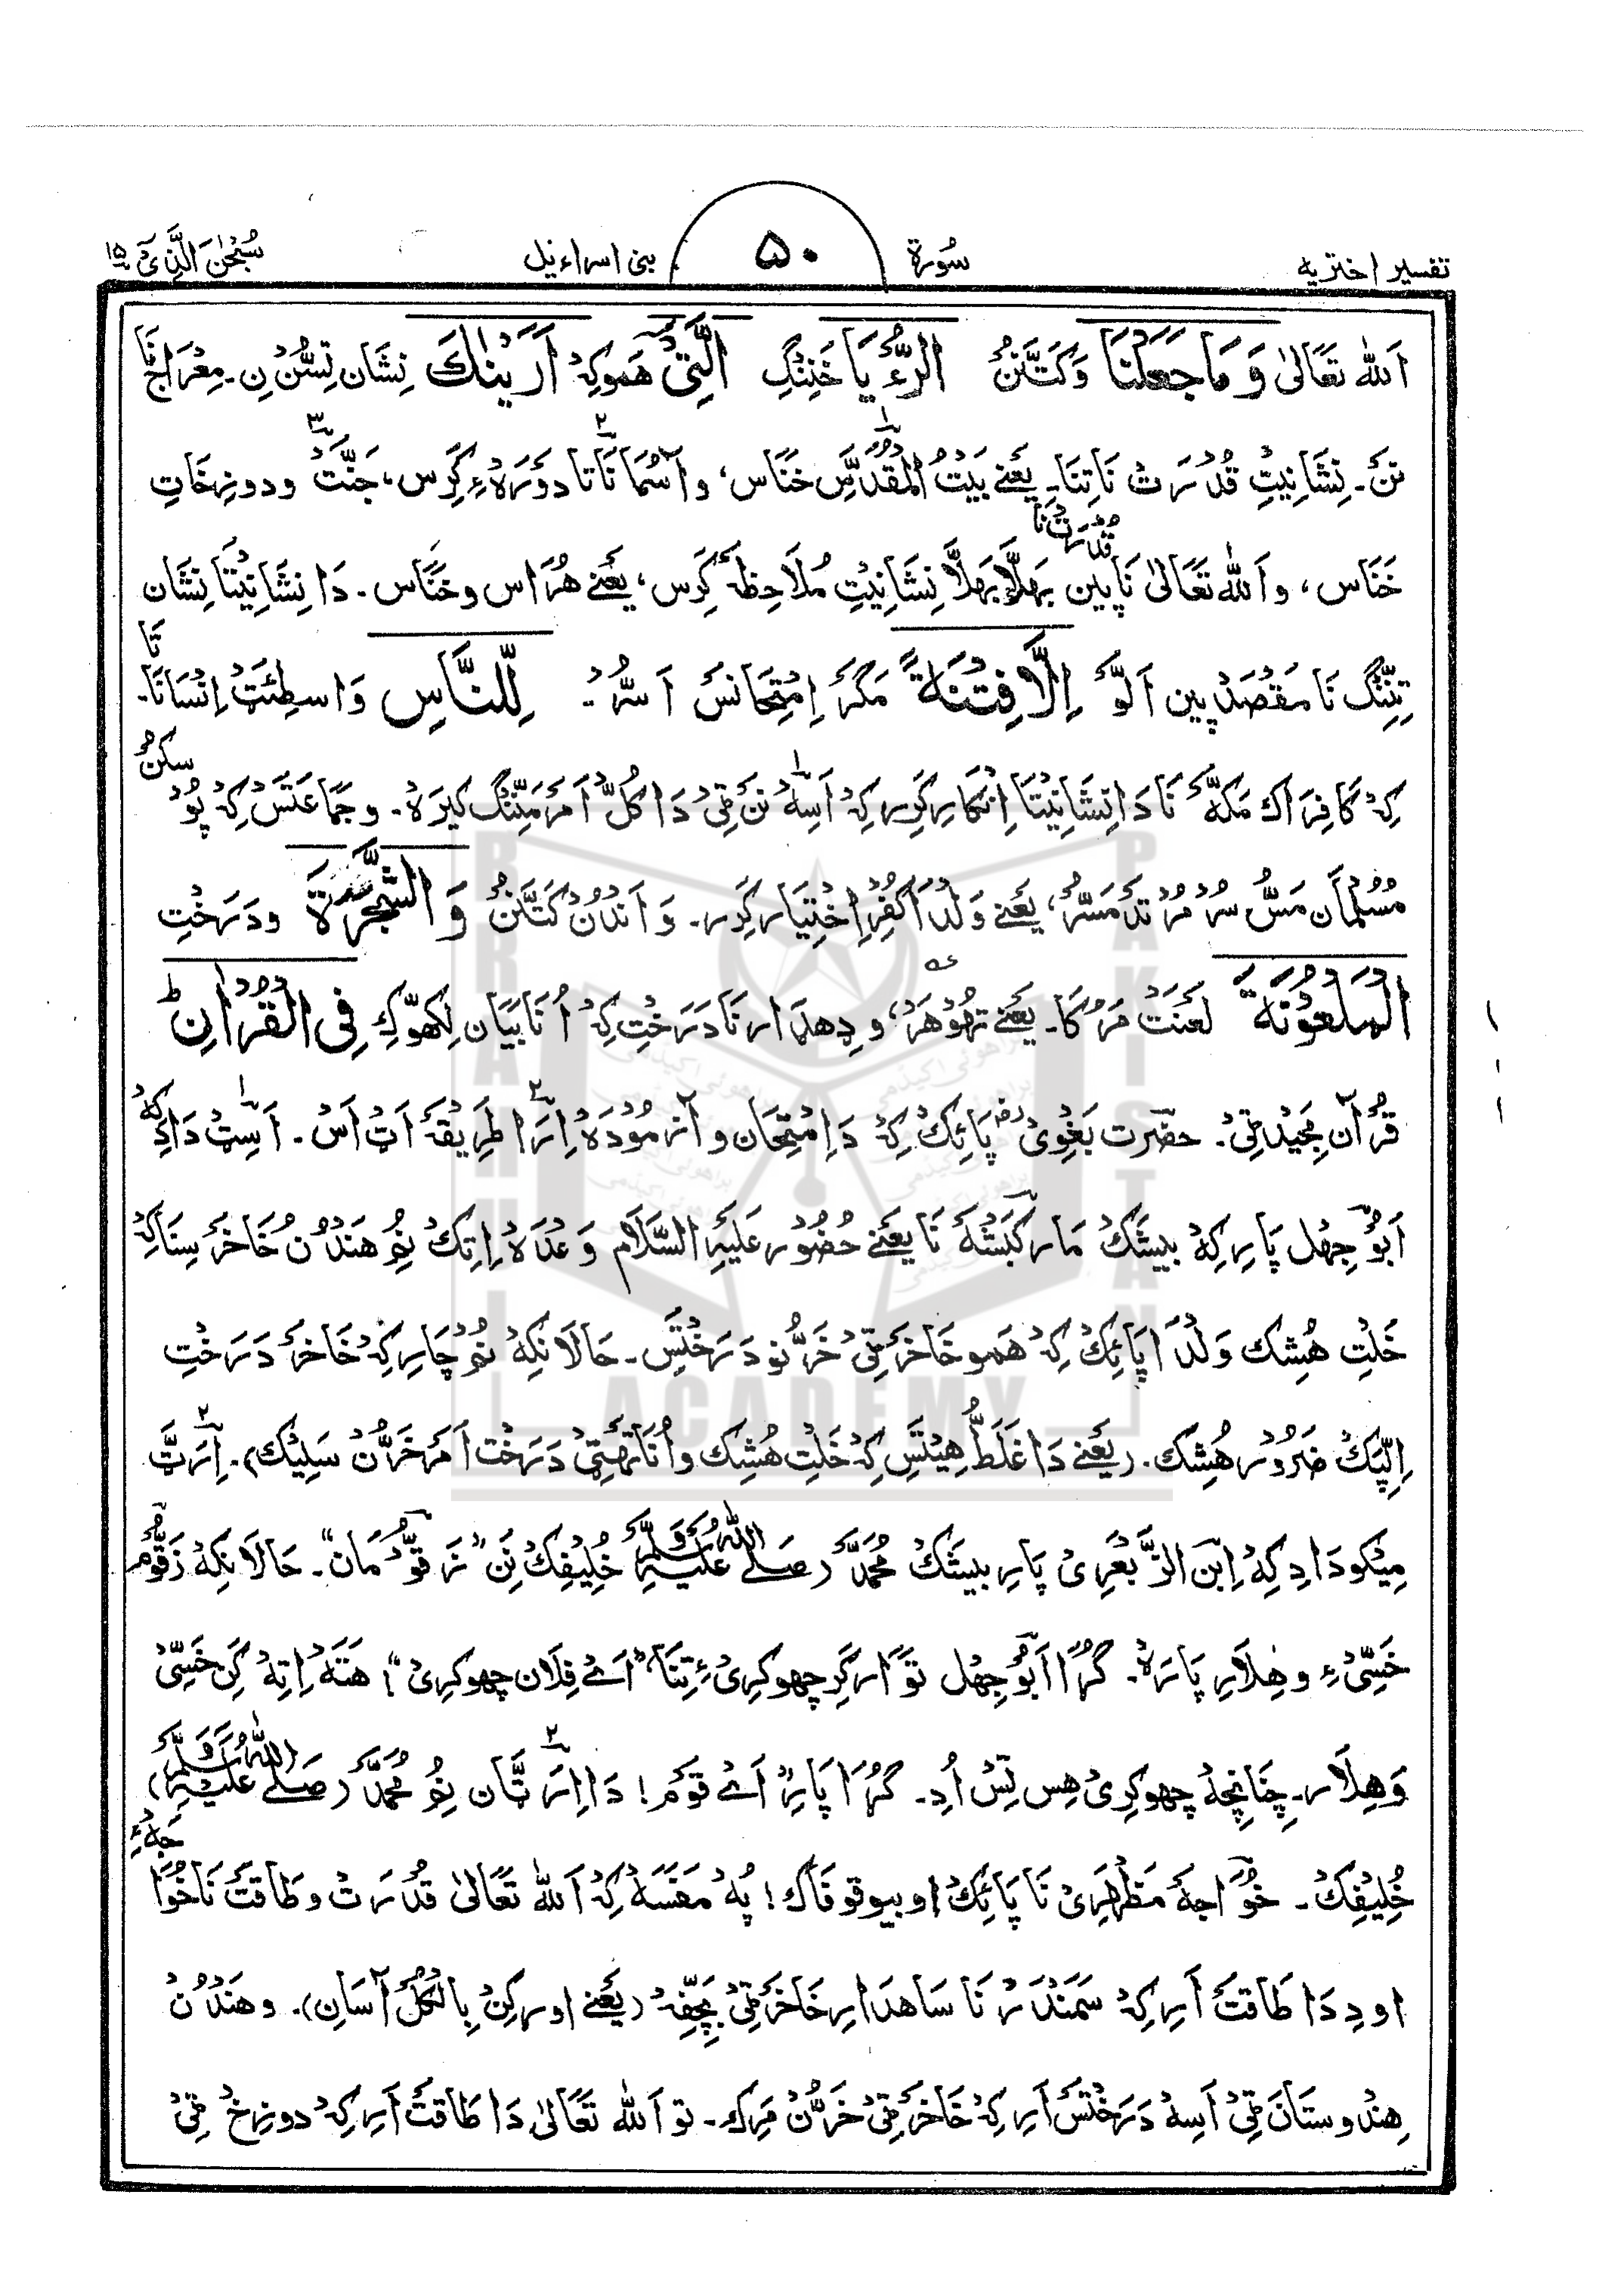 تفسیر اختریه سُورة ۵۰ بنی اسراءیل سُبْحٰنَ الَّذِیْ ۱۵
اَللّٰه تَعَالیٰ وَمَا جَعَلْنَا وَکَتَّنَنُ الرُّءْیَا خَنِنْگِ الَّتِیْ هَموکِهْ اَرَیْنٰكَ نِشَان تِسُّنْ نِ۔ مِعْرَاج نَا
نَنَ۔ نِشَانِیْتِ قُدْرَتْ نَا تِنَا۔ یَعْنِے بَیْتُ الْمُقَدَّس خَنَاس، و آسْمَانَاتا دَوْرَهءِ کَرِس، جَنَّتْ و دوزخَاتِ
خَنَاس، و اَللّٰه تَعَالیٰ نَا پین بَهلَّا بَهلَّا قُدْرَتْ نَا نِشَانِیْتِ مُلَاحِظَہ کَرِس، یَعْنِے هُرَاس و خَنَاس۔ دَا نِشَانِیْتَا نِشَان
تِنِنْگ نَا مَقْصَدْ پین اَلَّوْ اِلَّا فِتْنَةً مَگَر اِمْتِحَانَس اَسُّرْ۔ لِّلنَّاسِ وَاسطِئَتْ اِنْسَانَاتَا۔
کِهْ کَافِرَاك مَکَّه نَا دَا نِشَانِیْتَا اِنْکَار کَرِر کِهْ اَسِهْ نَنْ ٹِیْ دَا کُلّ اَمَر مَنِنْگ کیرَهْ۔ و جَمَاعَتَسْ کِهْ پُوْسکُنْ
مُسُلْمَان مَسُّسُرْ مُرْتَدْ مَسُّرْ، یَعْنے وَلْدَا کُفْرِ اِخْتِیَار کَرِر۔ وَ اَنْدُنْ کَتَّنَنُ وَ الشَّجَرَةَ و دَرَخْتِ
الْمَلْعُوْنَةَ لَعْنَتْ مَرُکَا۔ یَعْنِے تهُوْهَرْ، و دِهدَار نَا دَرَخْتِ کِهْ اُنَا بَیَان لِکهوّكِ فِی الْقُرْاٰنِ ط
قُرْآن مَجِیْد ٹِیْ۔ حضرت بَغْوِیْ پَائِكْ کِهْ دَا مْتِحَان و آزمُوْدَهْ اِرَا طَرِیْقَه اَٹْ اَسْ۔ اَسِٹْ دَادِ کِهْ
اَبُوْ جَهْل پَارِ کِهْ بیشَكْ مَار کَبْشَهْ نَا یَعْنے حُضُوْر عَلَیْهِ السَّلَام وَعْدَهْ اِتِكْ نُمِ هَنْدُنْ خَاخَر سِنَا کِهْ
خَلْتِ هُشِك وَلْدَا پَائِكْ کِهْ هَمو خَاخَر ٹِیْ خَرُّنو دَرَخْتَس۔ حَالَانِکِهْ نُم چَارِ کِهْ خَاخَر دَرَخْتِ
اِلِّپَكْ ضَرُوْر هُشِك۔ (یَعْنِے دَا غَلَطُّ هِیْتَس کِهْ خَلْتِ هُشِك و اُنَا تهٹِیْ دَرَخْت اَمَر خَرُّنْ سَلِیْك)۔ اِرَٹَّ
مِیْکو دَادِ کِهْ اِبْنَ الزَّبْعَرِیْ پَارِ بیشَكْ مُحَمَّد (صَلَّے اللّٰهُ عَلَیْهِ وَسَلَّم) خُلِیْفِكْ نَنِ "زَقُّوْمَان"۔ حَالَانِکِهْ زَقُّوْم
خَسِّیْءِ و هِلَارِ پَارَهْ۔ گُرَا اَبُوْجِهْل تَوْ اَر کَرِ چهوکرِیْءِ تِنَا، "اَے فِلَان چهوکرِیْ"! هَتَهْ اِتِهْ کَنِ خَسِّیْ
وَهِلَار۔ چَنَانِچِهْ چهوکرِیْ هِس تِسْ اُدِ۔ گُرَا پَارِ، اَے قَوْم! دَا اِرَ تَّان نُمِ مُحَمَّد (صَلَّے اللّٰهُ عَلَیْهِ وَسَلَّم)
خُلِیْفِكْ۔ خُوَاجَه مَظْهَرِیْ نَا پَائِكْ او بیوقوفَاك! پُهْ مَفَسَهْ کِهْ اَللّٰه تَعَالیٰ قُدْرَتْ و طَاقَتْ نَا خُوَاجَهْءِ
اودِ دَا طَاقَتْ اَرِ کِهْ سَمَنْدَرْ نَا سَاهدَارِ خَاخَر ٹِیْ بَچِّفِهْ (یَعْنے اور کِنْ بِالْکُلّ آسَانِ)۔ و هَنْدُنْ
هِنْدوستَان ٹِیْ اَسِهْ دَرَخْتَس اَرِ کِهْ خَاخَر ٹِیْ خَرُّنْ مَرِك۔ تو اَللّٰه تَعَالیٰ دَا طَاقَتْ اَرِ کِهْ دوزخْ ٹِیْ
BRAHUI ACADEMY PAKISTAN